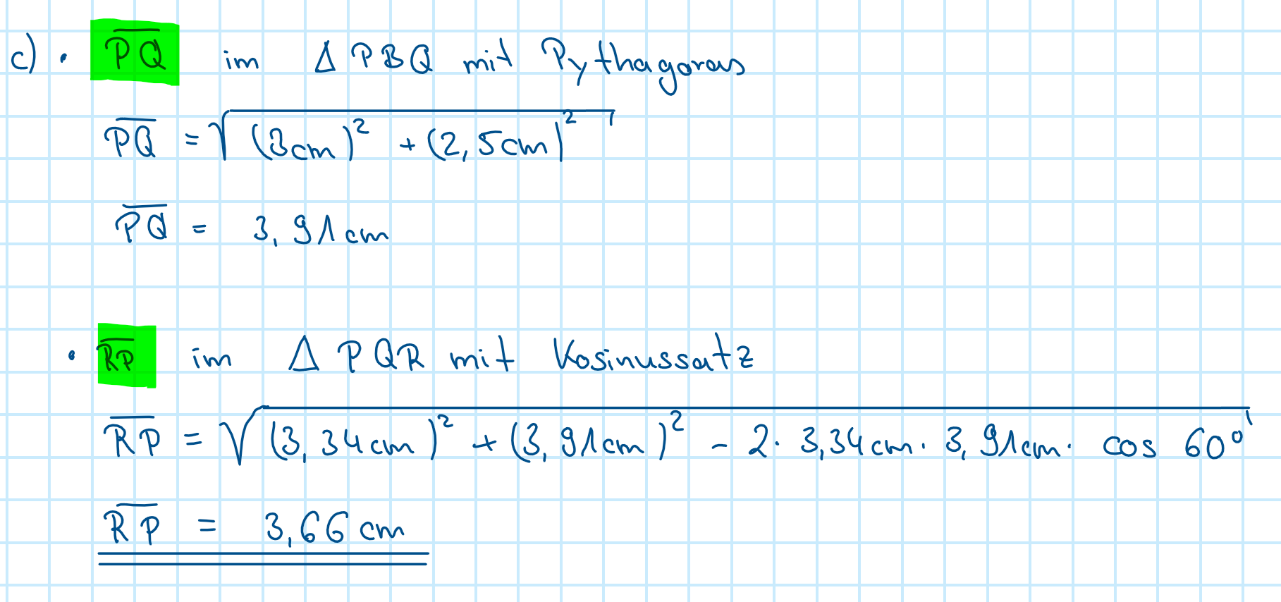 c) • \overline{PQ} im Δ PBQ mit Pythagoras
\overline{PQ} = √((3cm)² + (2,5cm)²)
\overline{PQ} = 3,91cm
• \overline{RP} im Δ PQR mit Kosinussatz
\overline{RP} = √((3,34cm)² + (3,91cm)² - 2·3,34cm·3,91cm·cos 60°)
\overline{RP} = 3,66cm